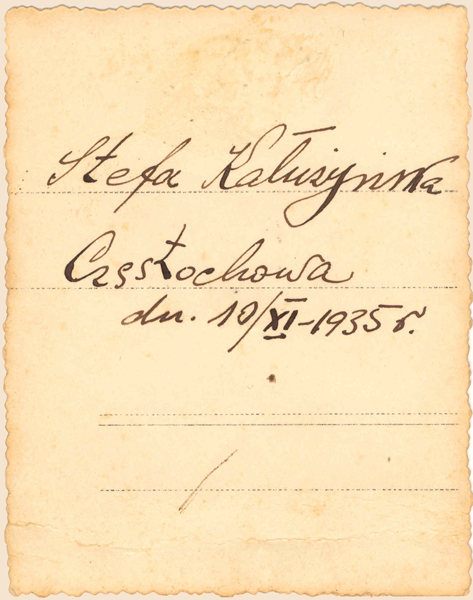 Stefa Kałużyńska
Częstochowa
dn. 10/XI-1935 r.